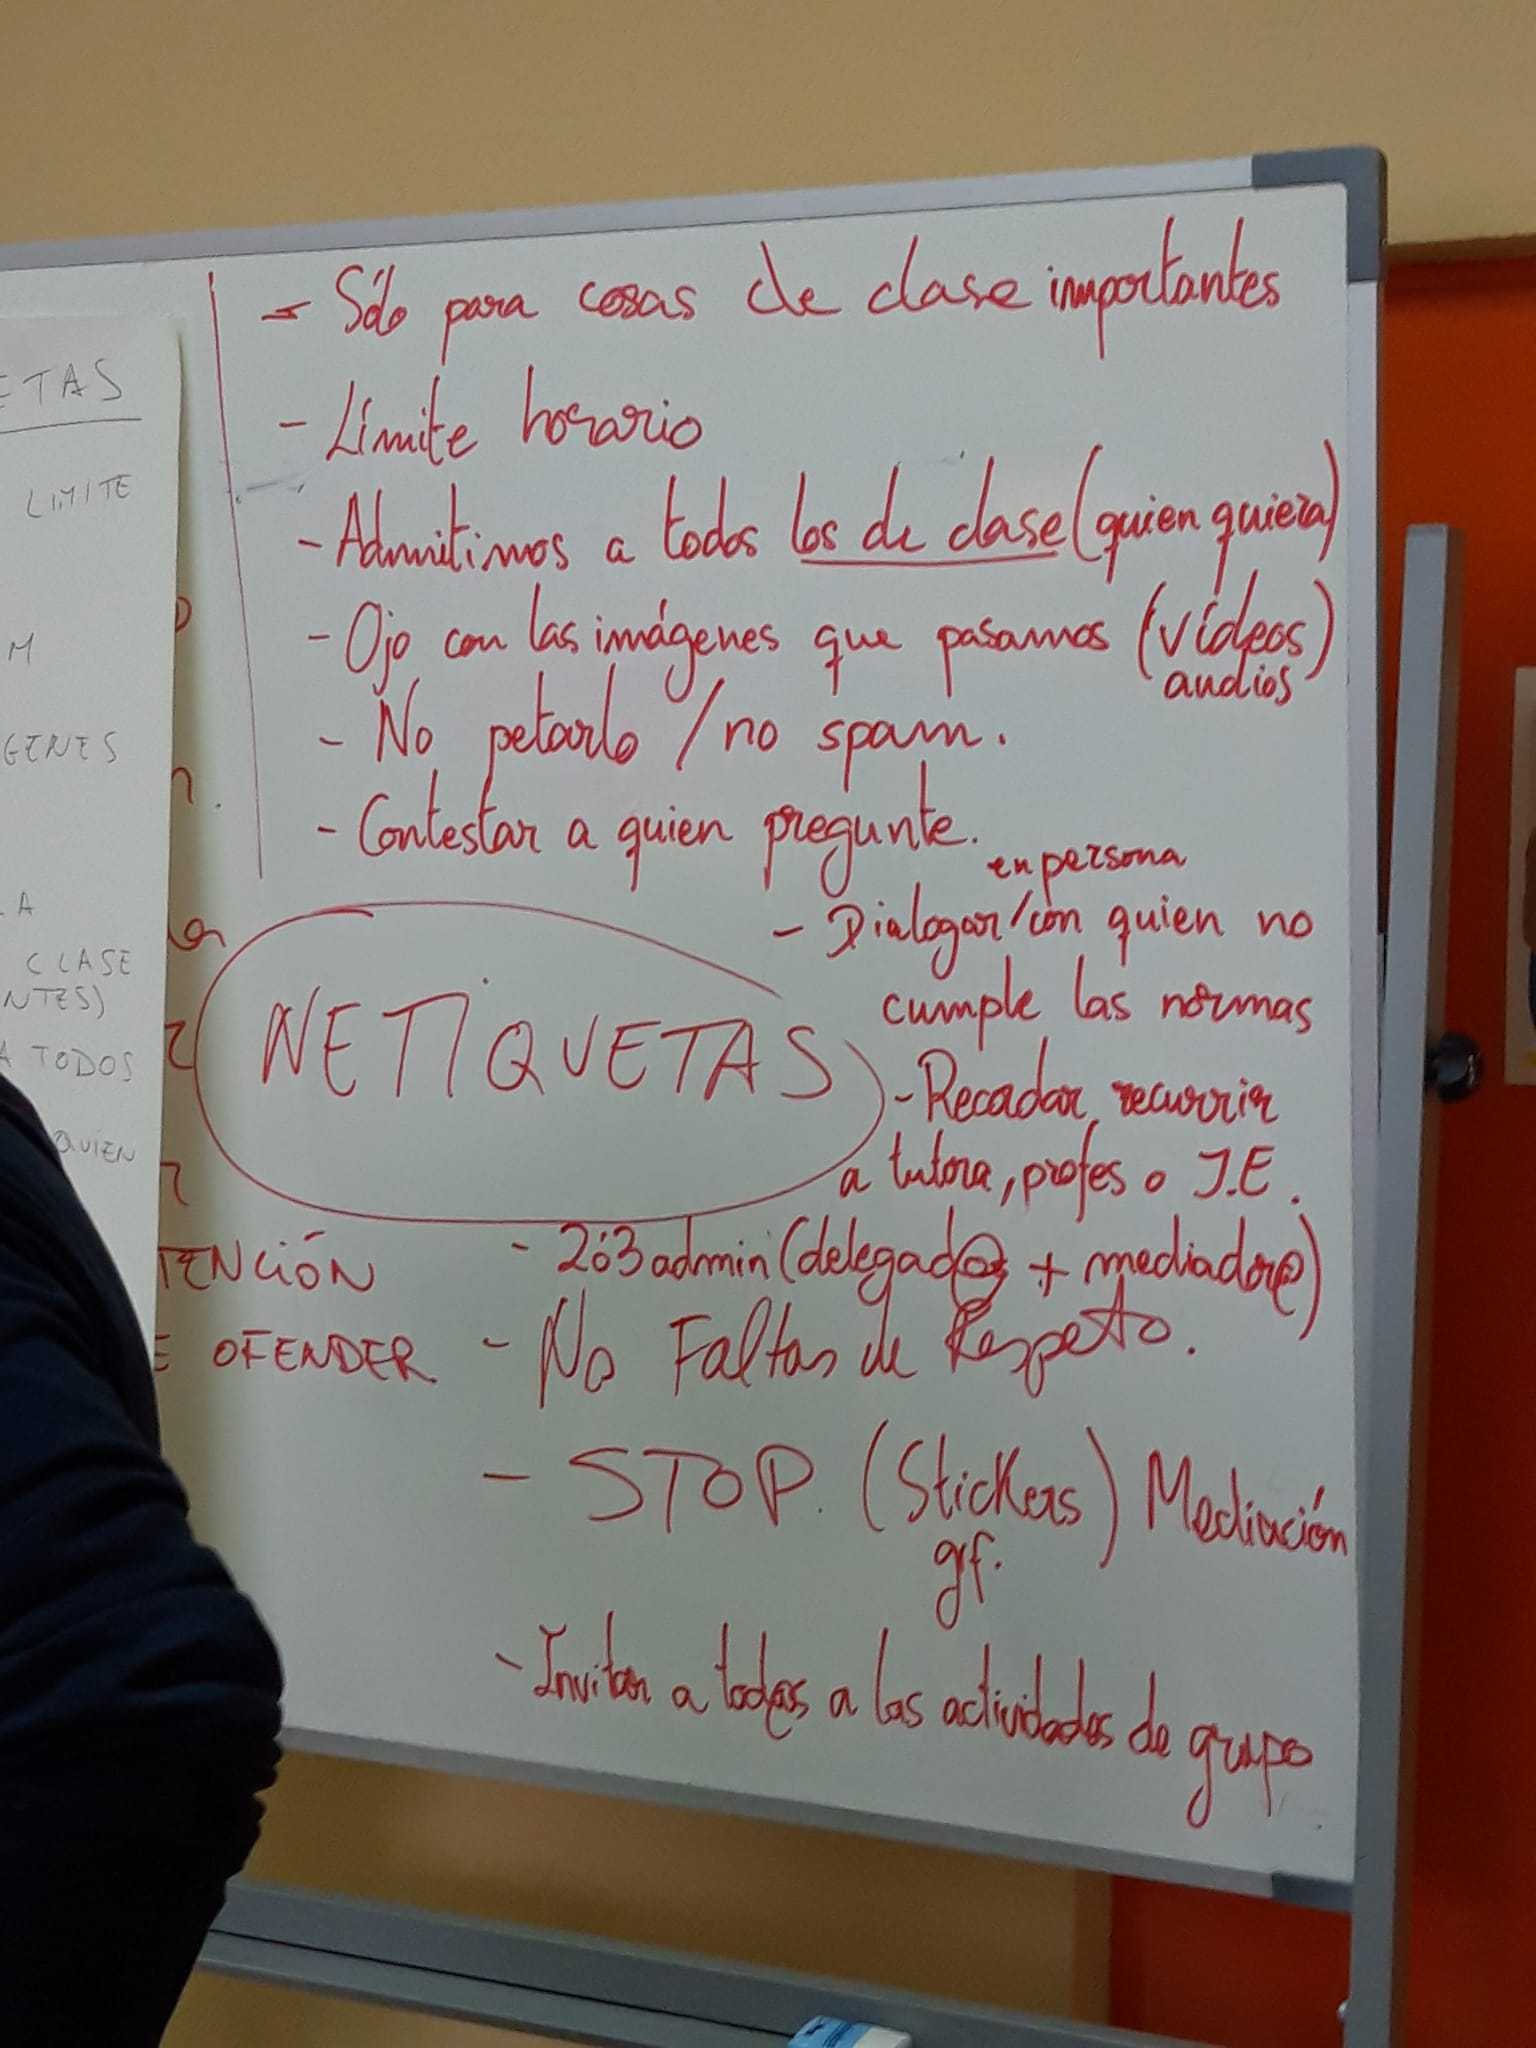 ETAS
LIMITE
M
GENES
LA
CLASE
NTES)
A TODOS
QUIEN
- Sólo para cosas de clase importantes
- Límite horario
- Admitimos a todos los de clase (quien quiera)
- Ojo con las imágenes que pasamos (vídeos)
audios
- No petarlo / no spam.
- Contestar a quien pregunte.
en persona
- Dialogar / con quien no
cumple las normas
NETIQUETAS
- Recadar, recurrir
a tutora, profes o J.E.
TENCIÓN
- 2ó3 admin (delegad@s + mediador@)
E OFENDER
- No Faltas de Respeto.
- STOP. (Stickers) Mediación
gif.
- Invitar a tod@s a las actividades de grupo